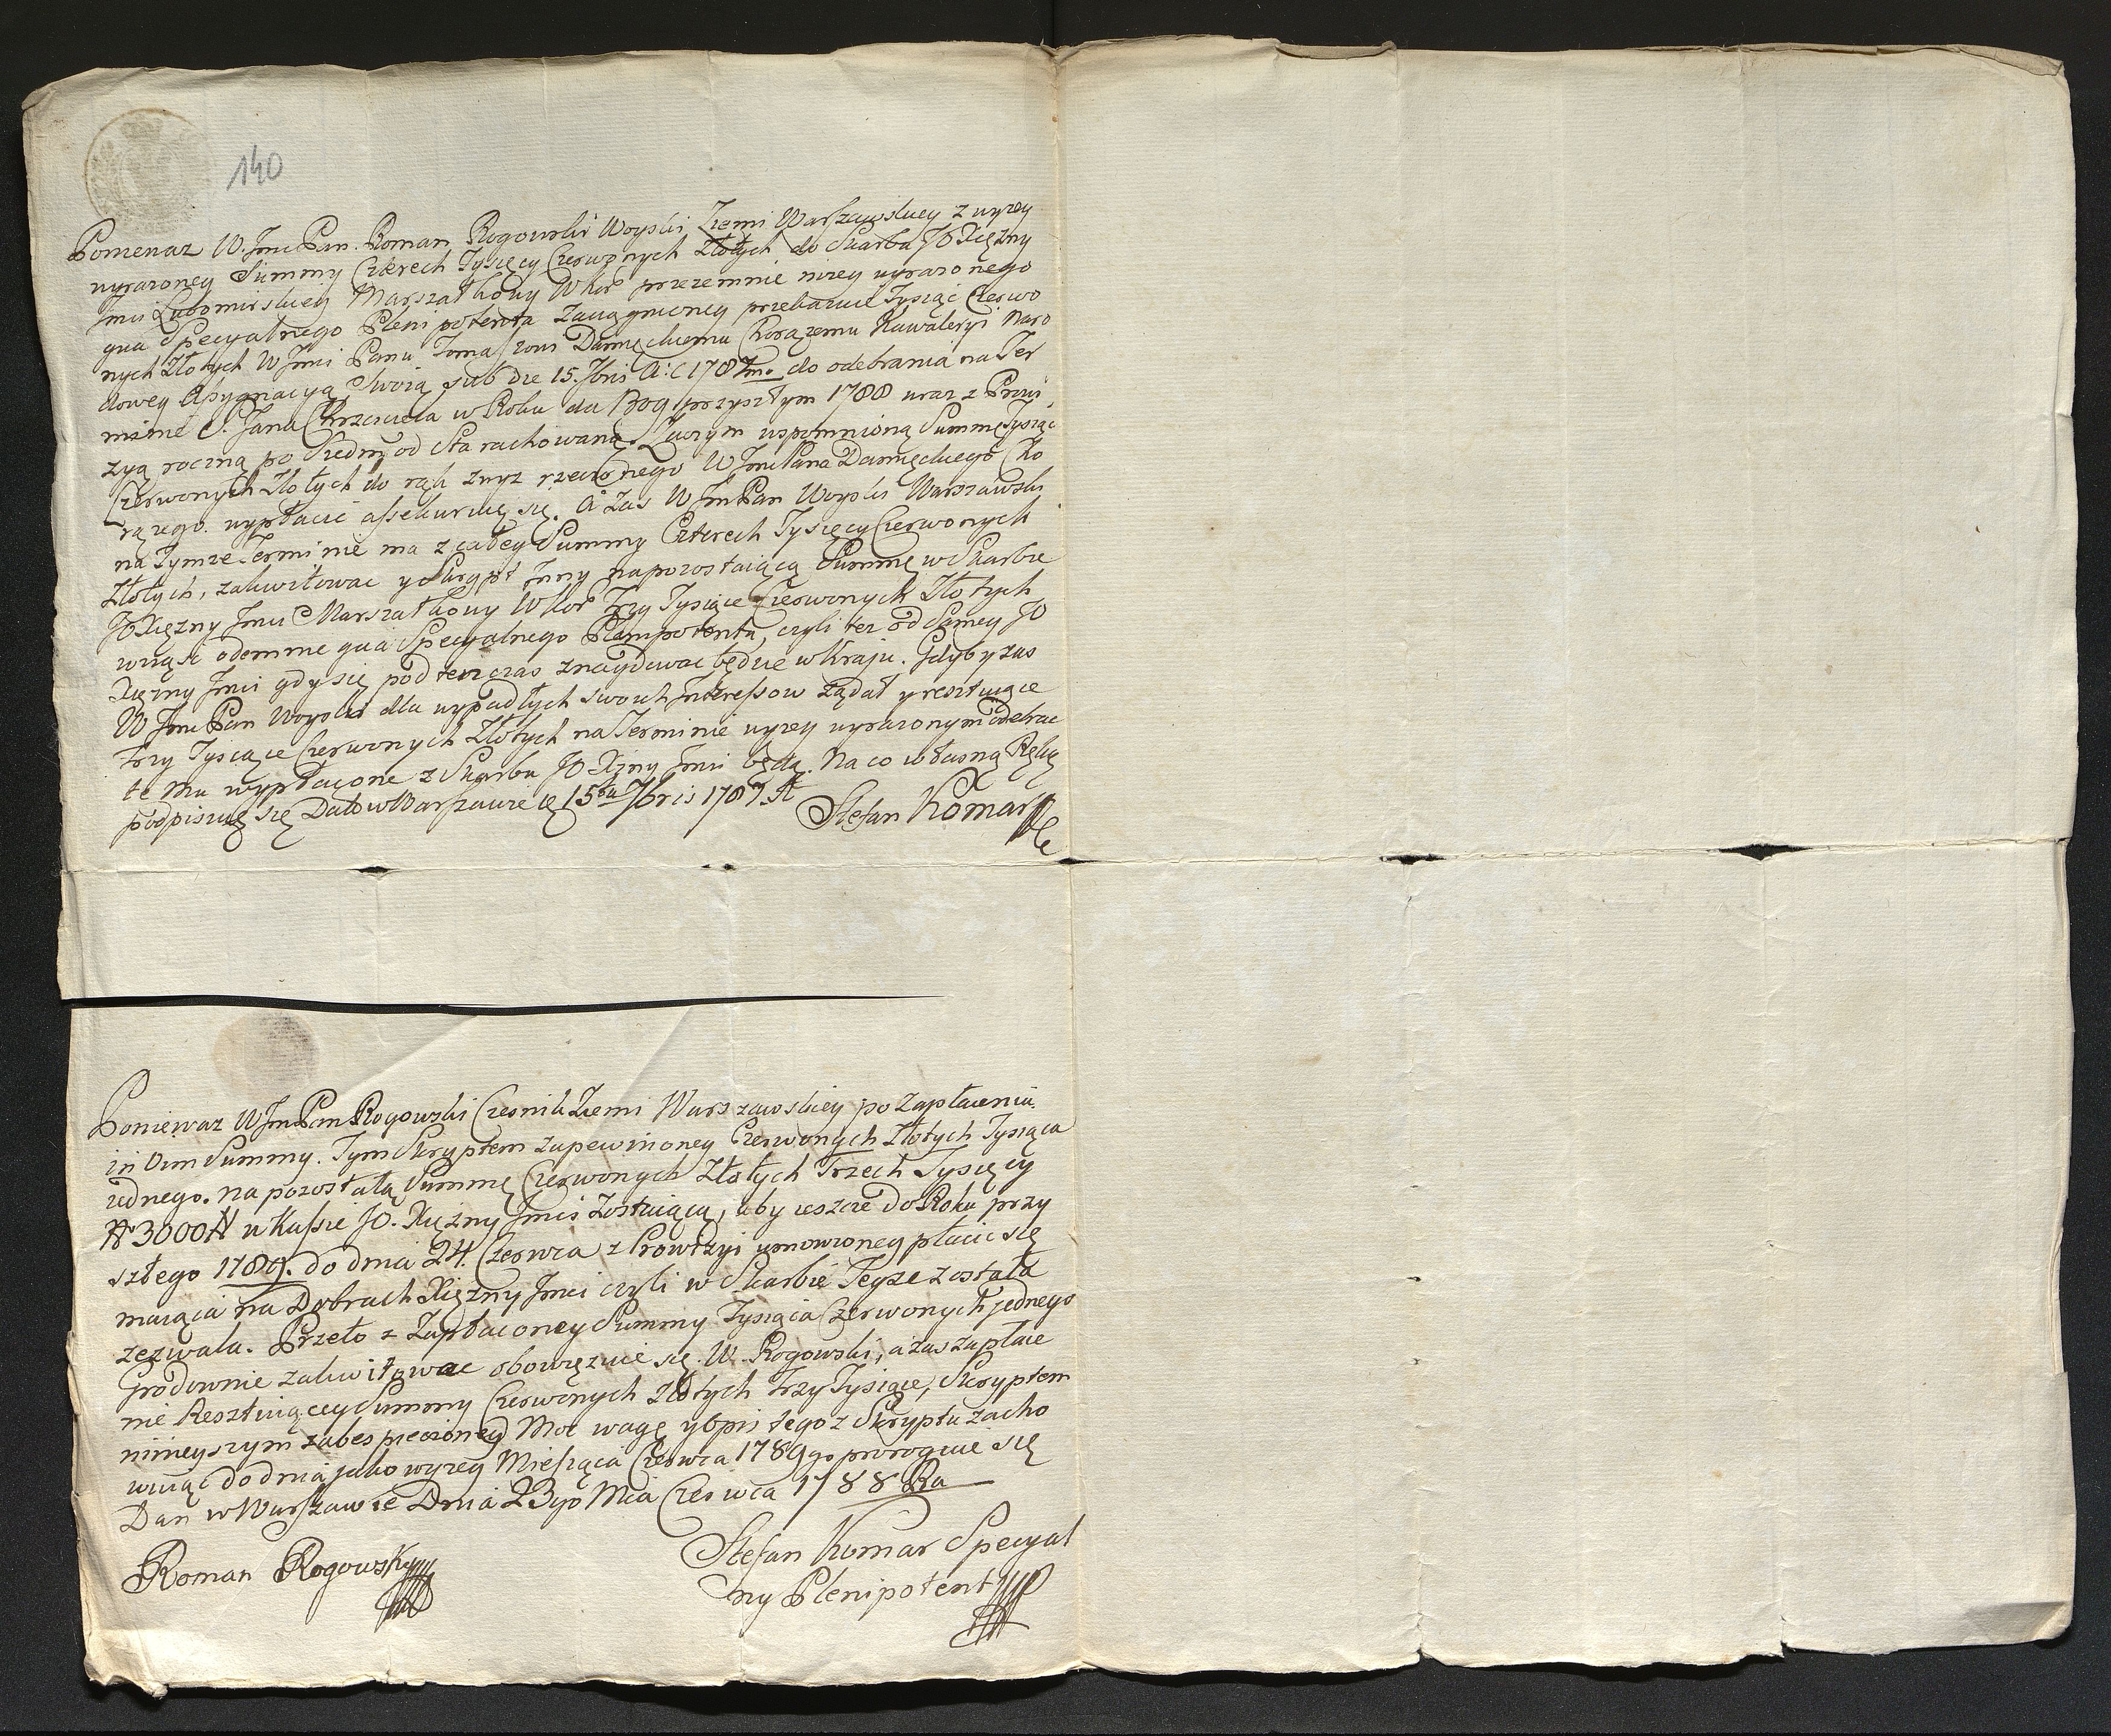 140
Ponieważ W. Jmc Pan Roman Rogowski Woyski Ziemi Warszawskiey z wyzey
wyrazoney Summy Czterech Tysięcy Czerwonych Złotych do Skarbu JO Xiężny
Jmci Lubomirskiey Marszałkowy WKor przezemnie nizey wyrazonego
qua Specyalnego Plenipotenta Zaciągnioney przekazuie Tysiąc Czerwo
nych Złotych W Jmci Panu Tomaszowi Damięckiemu Chorązemu Kawaleryi Naro
dowey Assygnacyą Swoią sub die 15. 7bris A: c 1787mo do odebrania na Ter
minie S. Jana Chrzciciela w Roku da Bog przyszłym 1788 wraz z Prowi
zyą roczną po Siedm od Sta rachowaną. Zaczym wspomnioną Summę Tysiąc
Czerwonych Złotych do rąk zwyz rzeczonego W Jmci Pana Damięckiego Cho
rązego wypłacić assekuruię się. A Zas W Jm Pan Woyski Warszawski
na Tymze Terminie ma z całey Summy Czterech Tysięcy Czerwonych
Złotych, zakwitowac y Skrypt Inny na pozostaiącą Summę w Skarbie
JO Xiężny Jmci Marszałkowy WKor Trzy Tysiące Czerwonych Złotych
wziąść odemnie qua Specyalnego Plenipotenta, czyli tez od Samey JO
Xiężny Jmci gdy się pod ten czas znaydować będzie w Kraju. Gdyby zas
W Jmc Pan Woyski dla wypadłych swoich Interessow żądał y resztuiące
trzy Tysiące Czerwonych Złotych na Terminie wyzey wyrazonym odebrac
te Mu wypłacone z Skarbu JO Xżny Jmci będą. Na co własną Ręką
podpisuię się Dat w Warszawie d 15ta 7bris 1787. R
Stefan Komar
Ponieważ W Jm Pan Rogowski Czesnik Ziemi Warszawskiey po Zapłaceniu
in Vim Summy. Tym Skryptem zapewnioney Czerwonych Złotych Tysiąca
iednego. na pozostałą Summę Czerwonych Złotych Trzech Tysięcy
# 3000 # w Kassie JO. Xiężny Jmci Zostaiącą, aby ieszcze do Roku przy
szłego 1789. do dnia 24. Czerwca z Prowizyi umowioney płacic się
maiąca na Dobrach Xiężny Jmci czyli w Skarbie Teyze została
zezwala. Przeto z Zapłaconey Summy Tysiąca Czerwonych jednego
grodownie zakwitowac obowięzuie się W. Rogowski, a zas zapłace
nie Resztuiącey Summy Czerwonych Złotych Trzy Tysiące, Skryptem
ninieyszym zabespieczoney Moc wagę y opis tego z Skryptu zacho
wuiąc do dnia jako wyzey Miesiąca Czerwca 1789go proroguie się
Dan w Warszawie Dnia 23go Mca Czerwca 1788 Ru
Roman Rogowski
Stefan Komar Specyal
ny Plenipotent